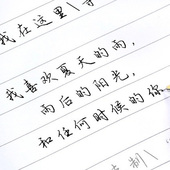 我在这里\
我喜欢夏天的雨，
雨后的阳光，
和任何时候的你
制\